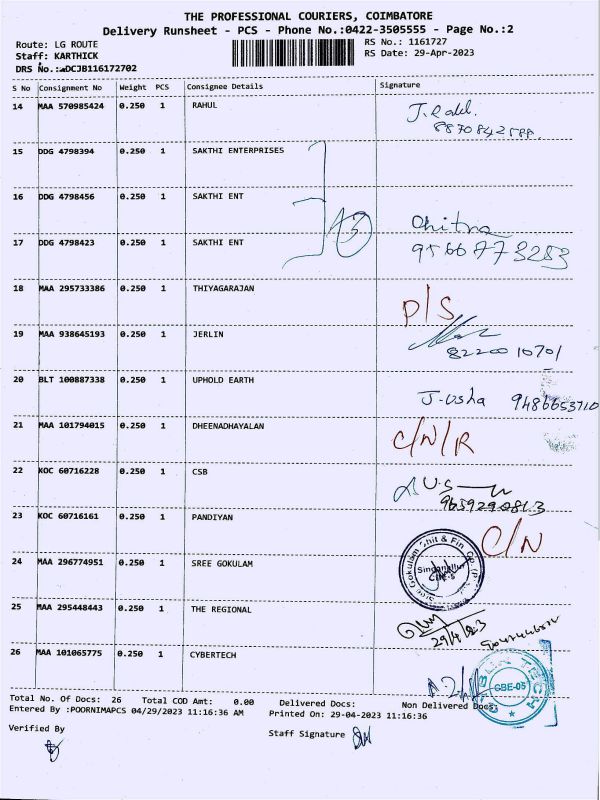 THE PROFESSIONAL COURIERS, COIMBATORE
Delivery Runsheet - PCS - Phone No.:0422-3505555 - Page No.:2
Route: LG ROUTE RS No.: 1161727
Staff: KARTHICK RS Date: 29-Apr-2023
DRS No.: DCJB116172702
S No Consignment No Weight PCS Consignee Details Signature
14 MAA 570985424 0.250 1 RAHUL
15 DDG 4798394 0.250 1 SAKTHI ENTERPRISES
16 DDG 4798456 0.250 1 SAKTHI ENT
17 DDG 4798423 0.250 1 SAKTHI ENT
Chitra
9566773283
18 MAA 295733386 0.250 1 THIYAGARAJAN P/S
19 MAA 938645193 0.250 1 JERLIN
8220010701
20 BLT 100887338 0.250 1 UPHOLD EARTH
J-Usha 9486653710
21 MAA 101794015 0.250 1 DHEENADHAYALAN C/N/R
22 KOC 60716228 0.250 1 CSB
23 KOC 60716161 0.250 1 PANDIYAN C/N
24 MAA 296774951 0.250 1 SREE GOKULAM
25 MAA 295448443 0.250 1 THE REGIONAL
29/4/23
26 MAA 101065775 0.250 1 CYBERTECH
CBE-05
Total No. Of Docs: 26 Total COD Amt: 0.00 Delivered Docs: Non Delivered Docs:
Entered By :POORNIMAPCS 04/29/2023 11:16:36 AM Printed On: 29-04-2023 11:16:36
Verified By Staff Signature